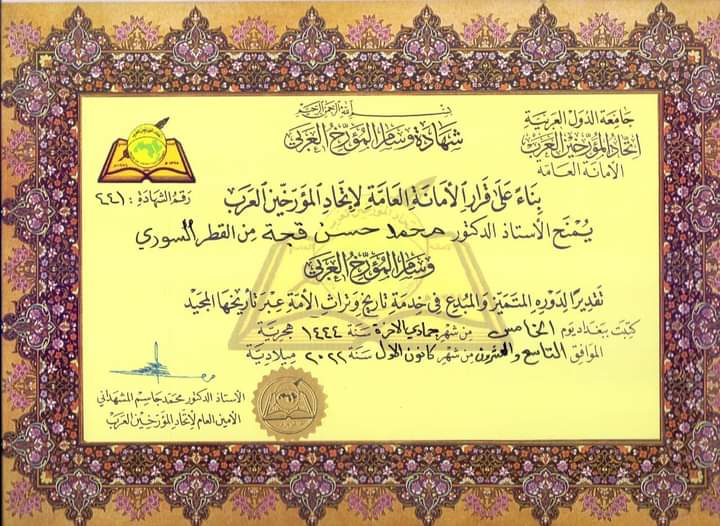 بسم الله الرحمن الرحيم
جامعة الدول العربية
اتحاد المؤرخين العرب
الأمانة العامة
شهادة وسام المؤرخ العربي
رقم الشهادة : ٢٤١
بناءً على قرار الأمانة العامة لاتحاد المؤرخين العرب
يُمنح الأستاذ الدكتور محمد حسن قجة من القطر السوري
وسام المؤرخ العربي
تقديراً لدوره المتميز والمبدع في خدمة تاريخ وتراث الأمة عبر تأريخها المجيد
كتبت ببغداد يوم الخامس من شهر جمادي الاخرة سنة ١٤٤٤ هجرية
الموافق التاسع والعشرون من شهر كانون الاول سنة ٢٠٢٢ ميلادية
الأستاذ الدكتور محمد جاسم المشهداني
الأمين العام لاتحاد المؤرخين العرب